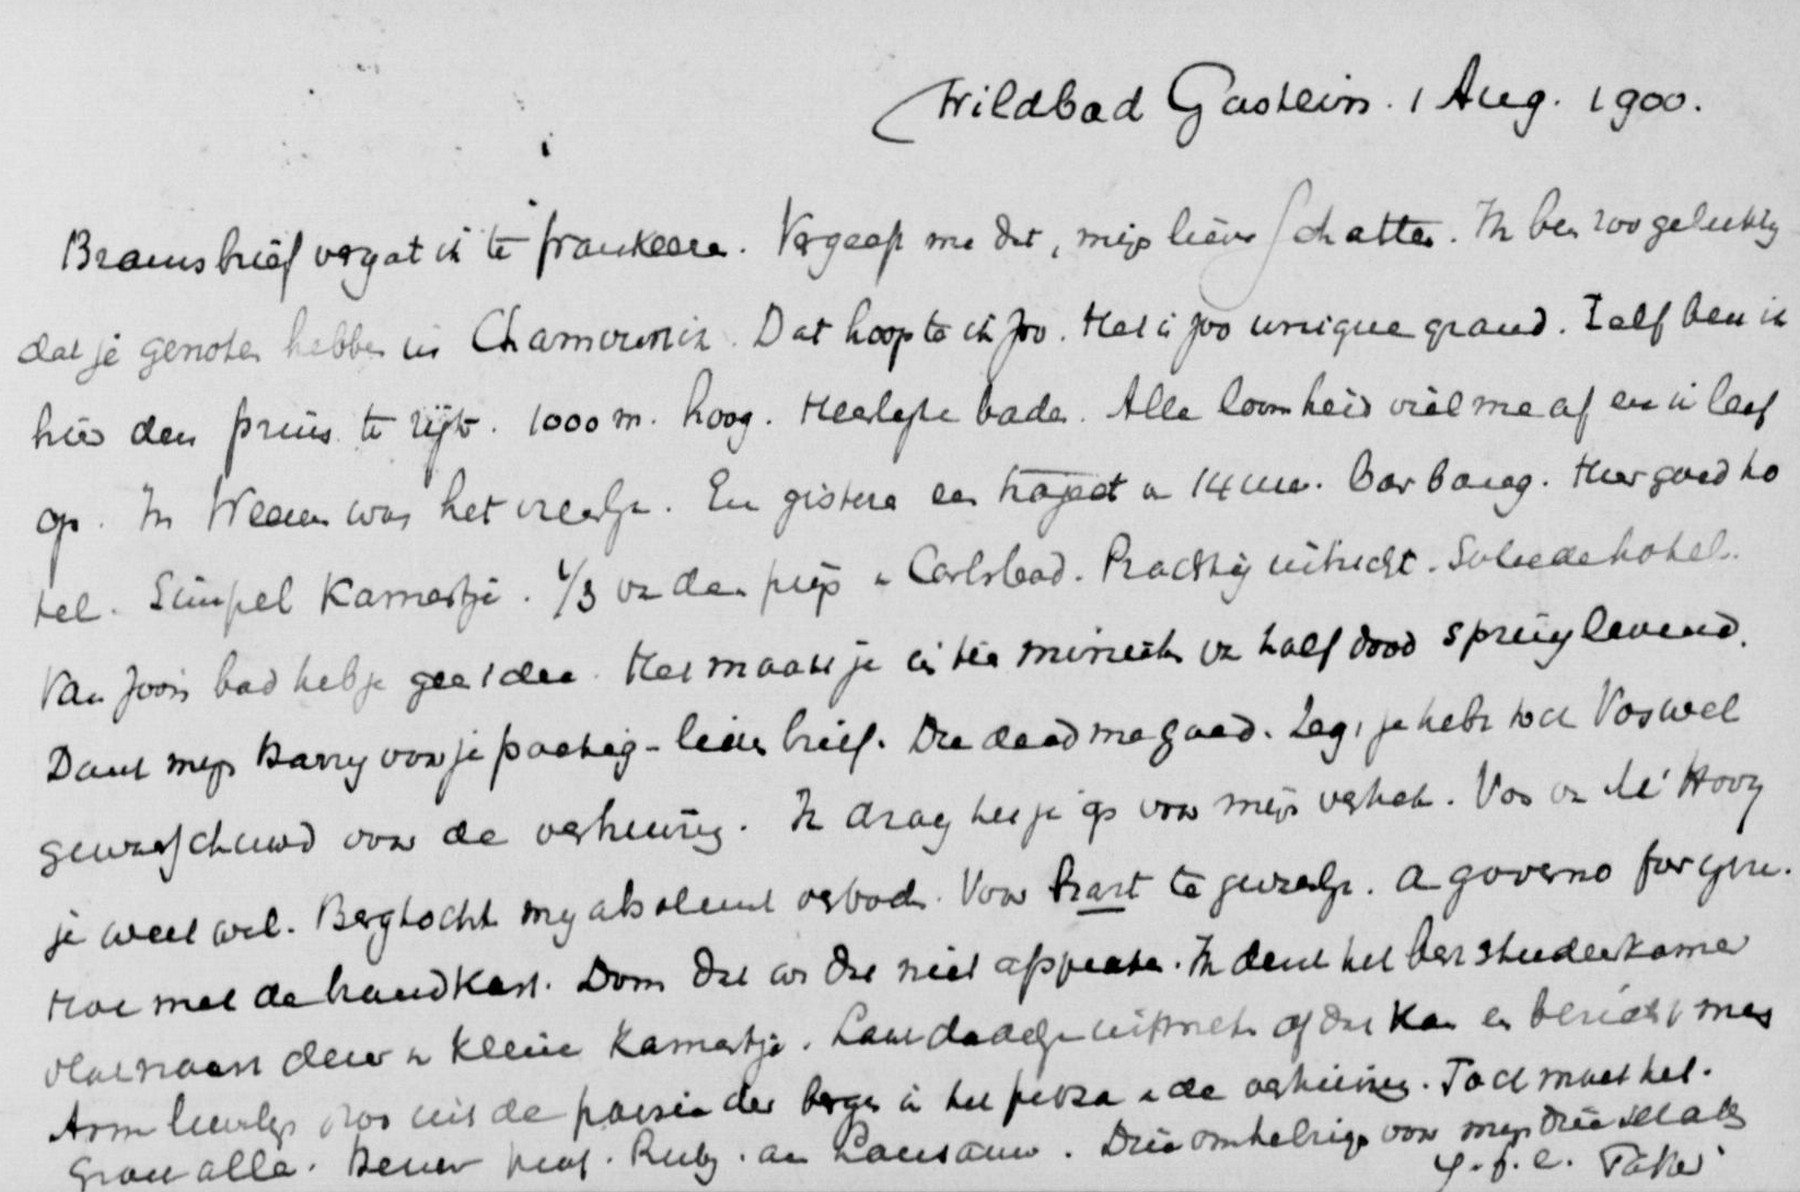 Wildbad Gastein. 1 Aug. 1900.
Brams brief vergat ik te frankeeren. Vergeef me dat, mijn lieve Schatten. Ik ben zoo gelukkig
dat je genoten hebben in Chamounix. Dat hoopte ik zoo. Het is zoo unique grand. Zelf ben ik
hier den prins te rijk. 1000 m. hoog. Heerlijke baden. Alle loomheid viel me af en ik leef
op. In Weenen was het vreeslijk. En gisteren een traject v 14 uur. Bar bang. Hier goed ho
tel. Simpel Kamertje. 1/3 vn den prijs v Carlsbad. Prachtig uitzicht. Solide hotel.
Van zoo'n bad heb je geen idee. Het maakt je in tien minuten vn half dood springlevend.
Dank mijn Harry voor je prachtig-lieven brief. Die deed me goed. Zeg, je hebt toch Vos wel
gewaarschuwd voor de verhuizing. Ik draag het je op voor mijn vertrek. Vos vn de Hoog
je weet wel. Bergtocht mij absoluut verboden. Voor hart te gevaarlijk. A governo for you.
Hoe met de brandkast. Dom dat we dat niet afspraken. Ik denk het best studeerkamer
vlak naast deur v kleine Kamertje. Laat dadelijk uitmeten of dat kan en bericht mij
Arm leventje zoo uit de poesie der bergen in het proza v de verhuizing. Toch moet het.
Groet alle. Drie omhelzingen voor mijn drie schatten
Y. f. e. Vader